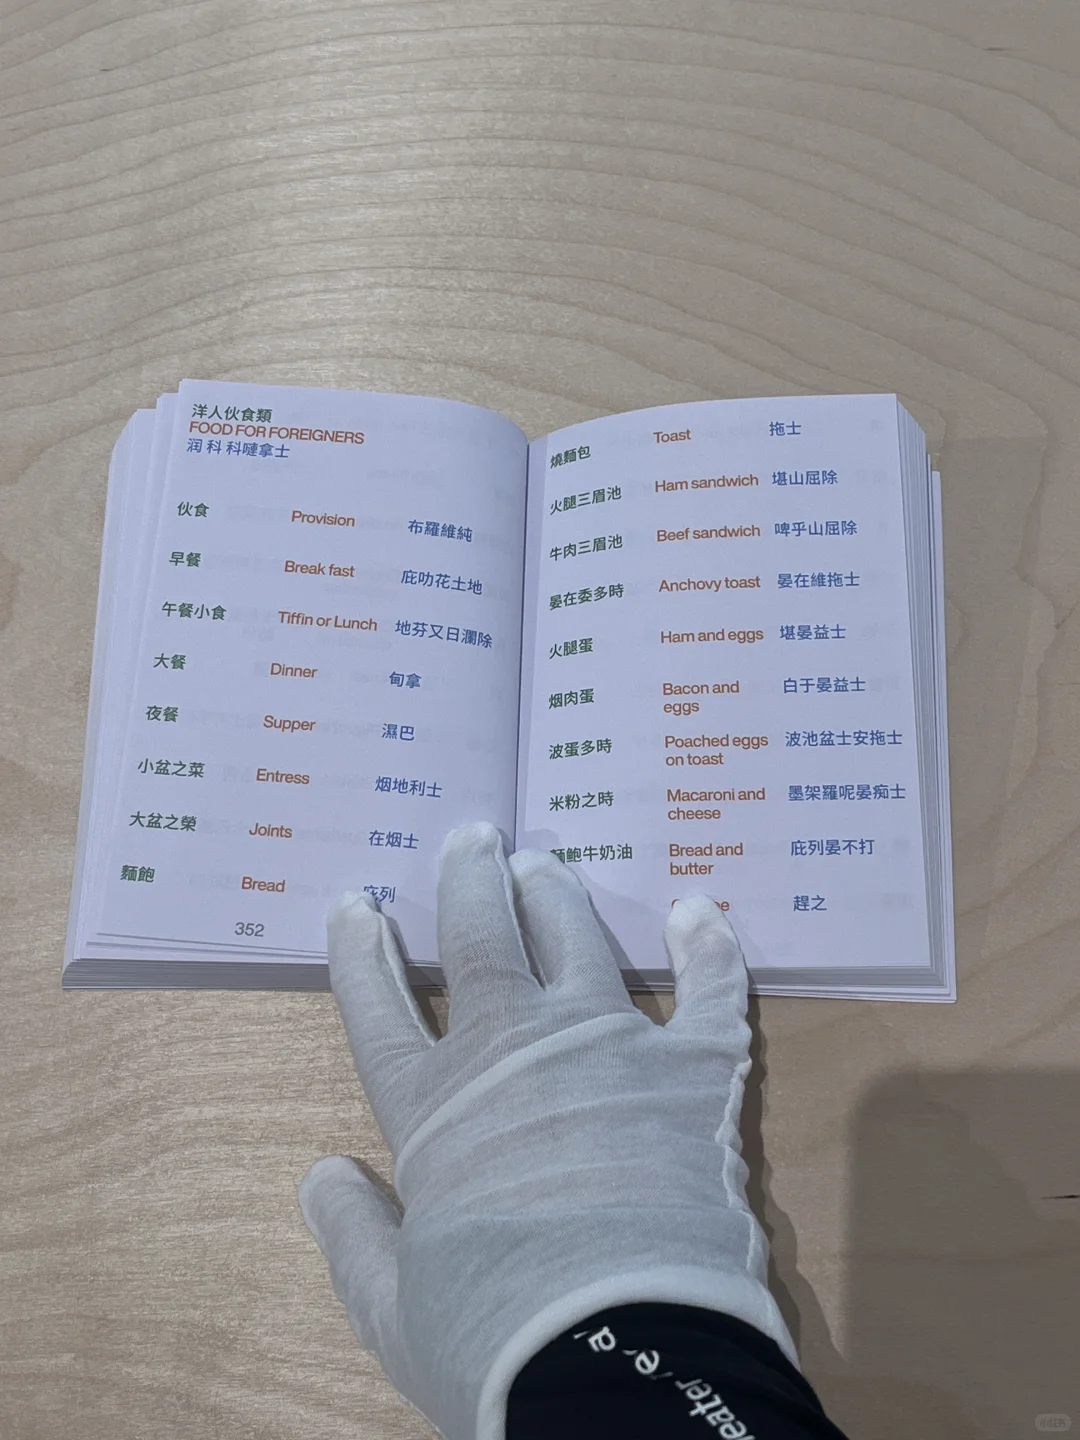 洋人伙食類
FOOD FOR FOREIGNERS
润 科 科嗹拿士
伙食 Provision 布羅維純
早餐 Break fast 庇叻花土地
午餐小食 Tiffin or Lunch 地芬又日瀾除
大餐 Dinner 甸拿
夜餐 Supper 濕巴
小盆之菜 Entress 烟地利士
大盆之榮 Joints 在烟士
麵飽 Bread 庇列
352
燒麵包 Toast 拖士
火腿三眉池 Ham sandwich 堪山屈除
牛肉三眉池 Beef sandwich 啤乎山屈除
晏在委多時 Anchovy toast 晏在維拖士
火腿蛋 Ham and eggs 堪晏益士
烟肉蛋 Bacon and 白于晏益士
eggs
波蛋多時 Poached eggs 波池盆士安拖士
on toast
米粉之時 Macaroni and 墨架羅呢晏痴士
cheese
麵鲍牛奶油 Bread and 庇列晏不打
butter
趕之
eater